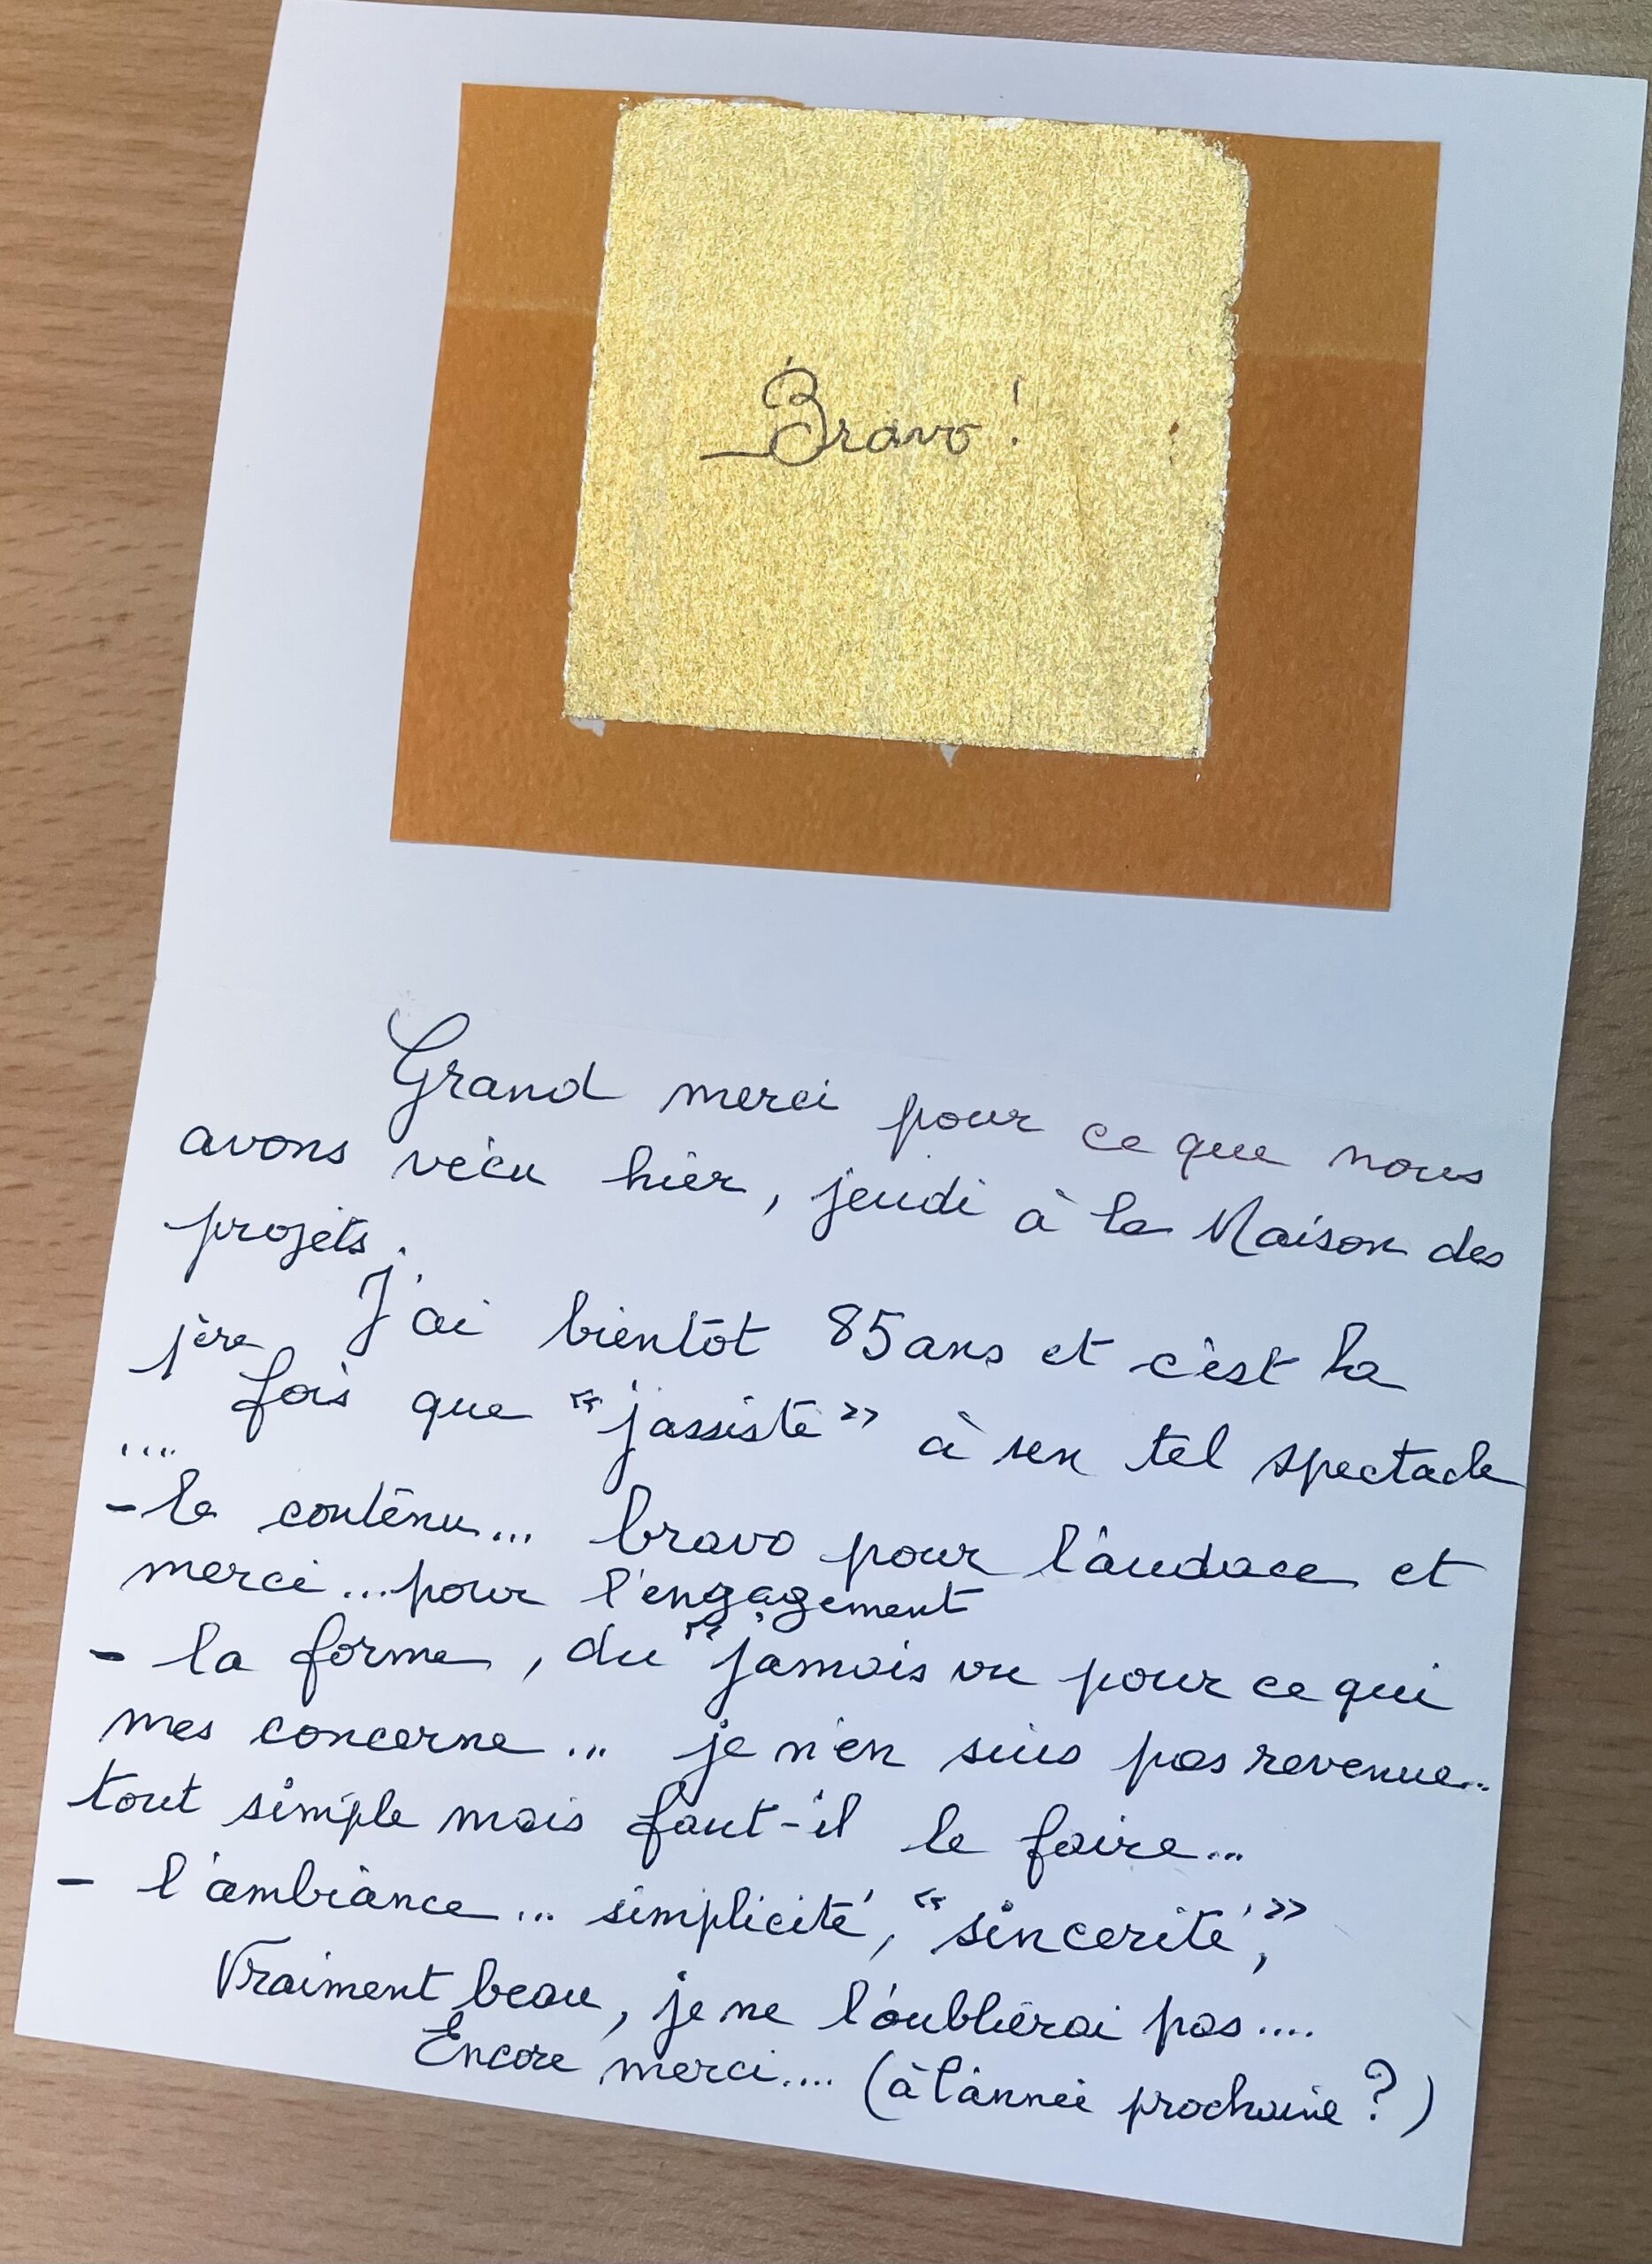 Bravo !
Grand merci pour ce que nous
avons vécu hier, jeudi à la Maison des
projets.
J'ai bientôt 85 ans et c'est la
1ère fois que "j'assiste" à un tel spectacle
....
- le contenu... bravo pour l'audace et
merci... pour l'engagement
- la forme, du "jamais vu pour ce qui
mes concerne... je n'en suis pas revenue..
tout simple mais faut-il le faire...
- l'ambiance... simplicité, "sincerité",
Vraiment beau, je ne l'oublierai pas....
Encore merci.... (à l'année prochaine ?)